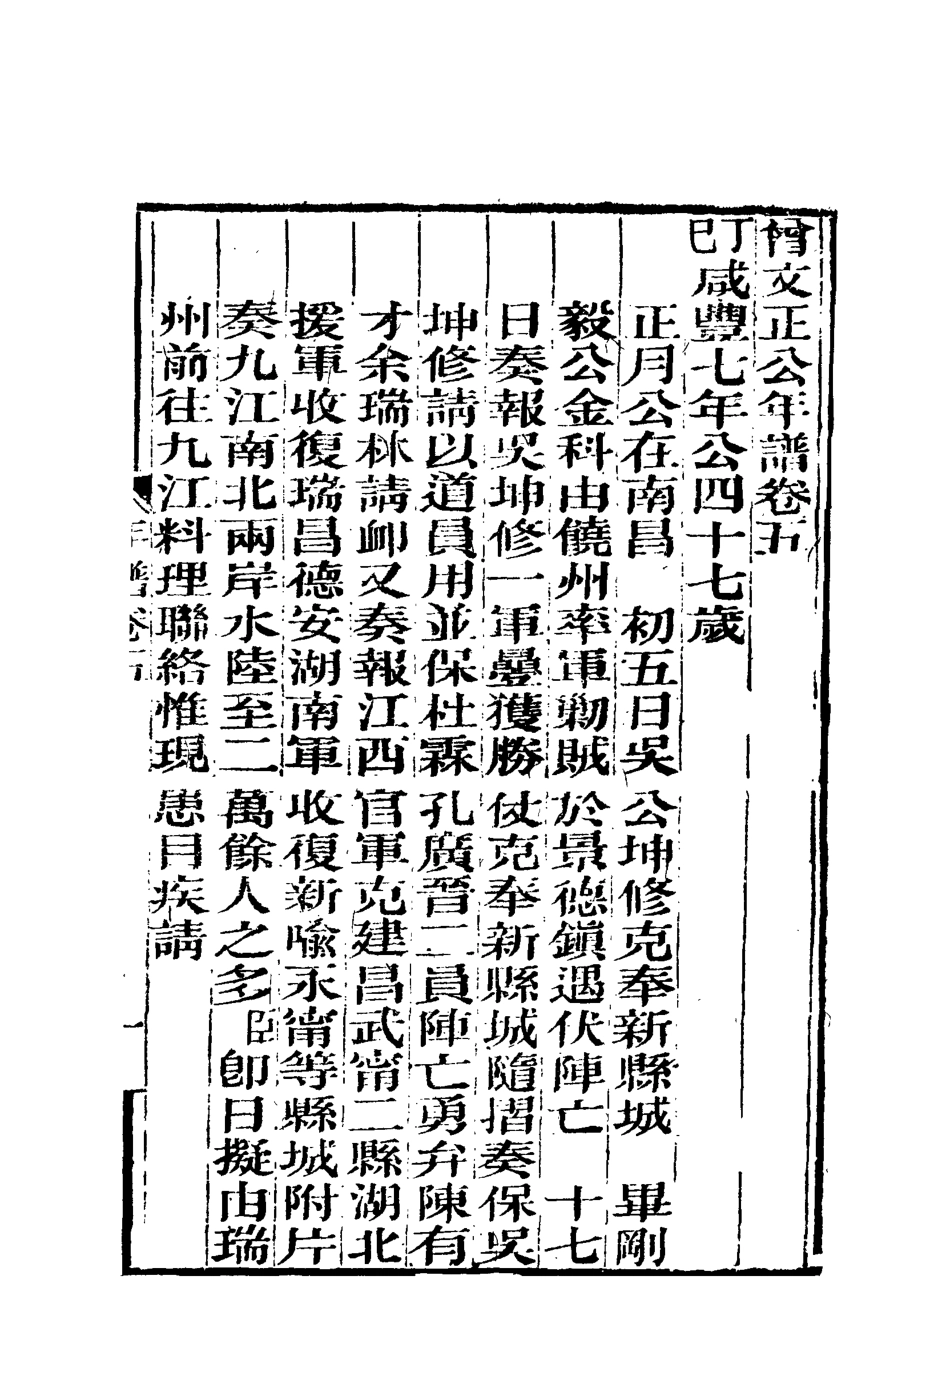 曾文正公年譜卷五
丁巳咸豐七年公四十七歲
正月公在南昌　初五日吳公坤修克奉新縣城　畢剛
毅公金科由饒州率軍勦賊於景德鎮遇伏陣亡　十七
日奏報吳坤修一軍疊獲勝仗克奉新縣城隨摺奏保吳
坤修請以道員用並保杜霖孔廣晉二員陣亡勇弁陳有
才余瑞林請卹又奏報江西官軍克建昌武甯二縣湖北
援軍收復瑞昌德安湖南軍收復新喻永甯等縣城附片
奏九江南北兩岸水陸至二萬餘人之多臣卽日擬由瑞
州前往九江料理聯絡惟現患目疾請
年譜卷五
一